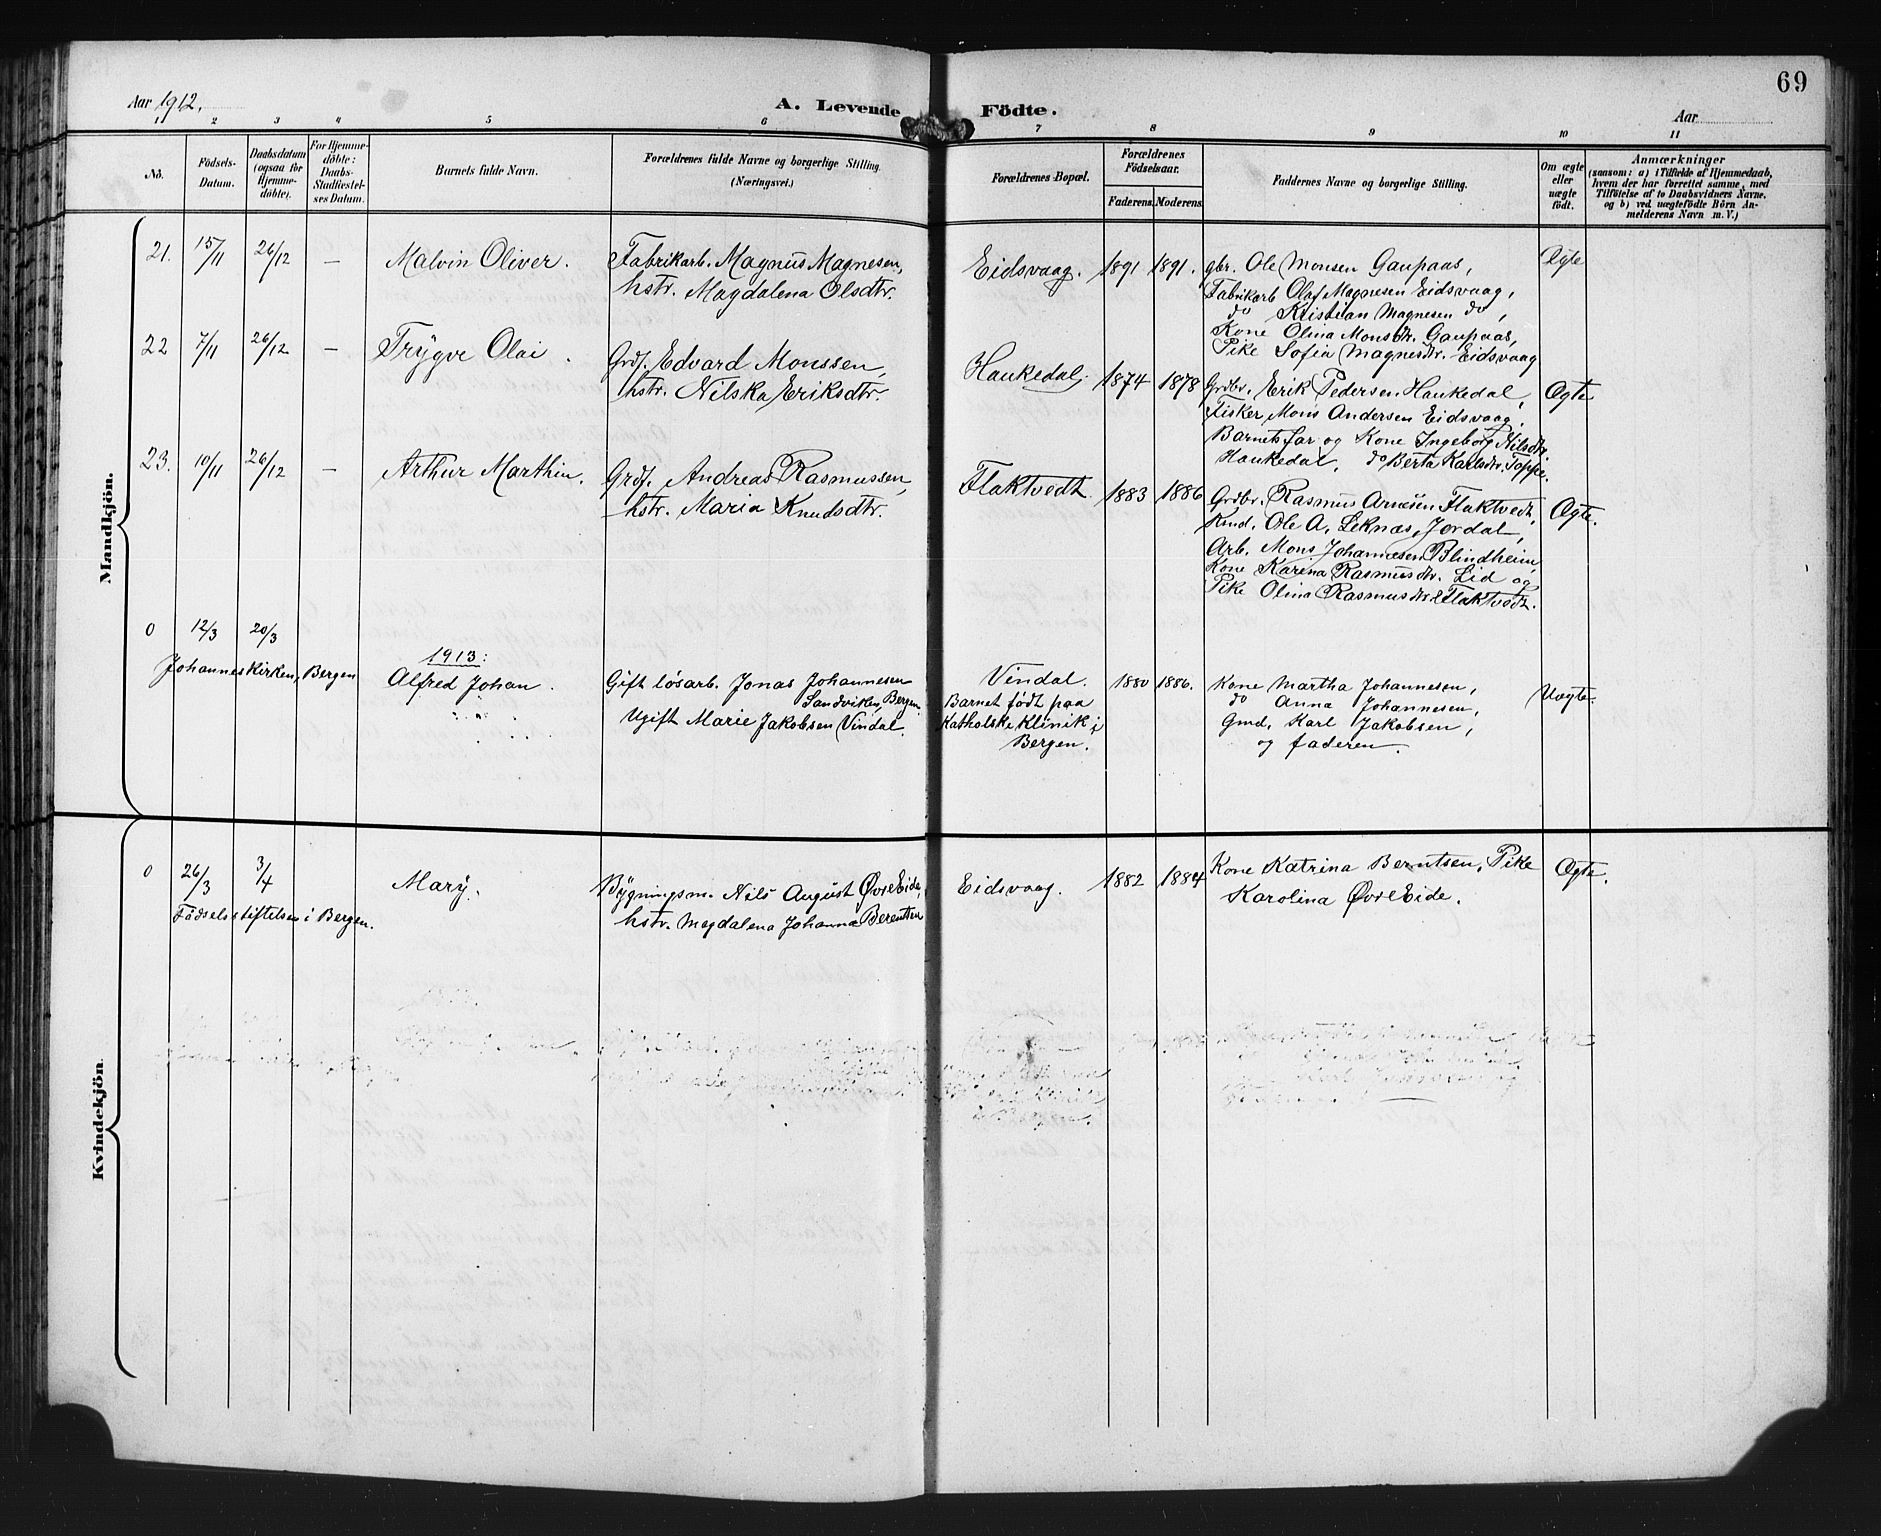 69
Aar 1912.
A. Levende Födte.
Aar
1 2 3 4 5 6 7 8 9 10 11
No.
Födsels-Datum.
Daabsdatum (ogsaa for Hjemme-döbte).
For Hjemme-döbte: Daabs-Stadfæstel-ses Datum.
Barnets fulde Navn.
Forældrenes fulde Navne og borgerlige Stilling.
(Næringsvei.)
Forældrenes Bopæl.
Forældrenes Födselsaar.
Faderens. Moderens.
Faddernes Navne og borgerlige Stilling.
Om ægte eller uægte födt.
Anmærkninger
(saasom: a) i Tilfælde af Hjemmedaab,
hvem der har forrettet samme, med
Tilföielse af to Daabsvidners Navne,
og b) ved uægtefödte Börn An-
melderens Navn m. V.)
Mandkjön.
21. 15/11 26/12 — Malvin Oliver. Fabrikarb. Magnus Magnesen, Eidsvaag. 1891 1891. gbr. Ole Monsen Gaupaas, Ægte
hstr. Magdalena Olsdtr. Fabrikarb Olaf Magnesen Eidsvaag,
do Kristian Magnesen do,
Kone Olina Monsdtr. Gaupaas,
Pike Sofia Magnesdtr. Eidsvaag
22 7/11 26/12 — Trygve Olai. Grdf. Edvard Monssen, Haukedal. 1874 1878 Grdbr. Erik Pedersen Haukedal, Ægte
hstr. Nilska Eriksdtr. Fisker Mons Andersen Eidsvaag,
Barnets far og Kone Ingeborg Nilsdtr.
Haukedal, do Berta Karlsdtr. Toppe.
23. 10/11 26/12 — Arthur Marthin. Grdf. Andreas Rasmussen, Flaktvedt. 1883 1886 Grdbr. Rasmus Arnesen Flaktvedt, Ægte.
hstr. Maria Knudsdtr. Kmd. Ole A. Leknæs, Jordal,
Arb. Mons Johannesen Blindheim,
Kone Karina Rasmusdtr. Lid og
Pike Olina Rasmusdtr. Flaktvedt.
0 12/3 20/3
1913:
Johanneskirken, Bergen Alfred Johan. Gift løsarb. Jonas Johannesen Vindal. 1880 1886. Kone Martha Johannesen, Uægte.
Sandviken, Bergen. Barnet født paa do Anna Johannesen,
Ugift Marie Jakobsen Vindal. Katholske Klinik i Gmd. Karl Jakobsen,
Bergen. og faderen.
Kvindekjön
0 26/3 3/4 Mary. Bygningsm. Nils August Øvre Eide, Eidsvaag. 1882 1884 Kone Katrina Berntsen, Pike Ægte.
Fødselsstiftelsen i Bergen. hstr. Magdalena Johanna Berentsen Karolina Øvre Eide.